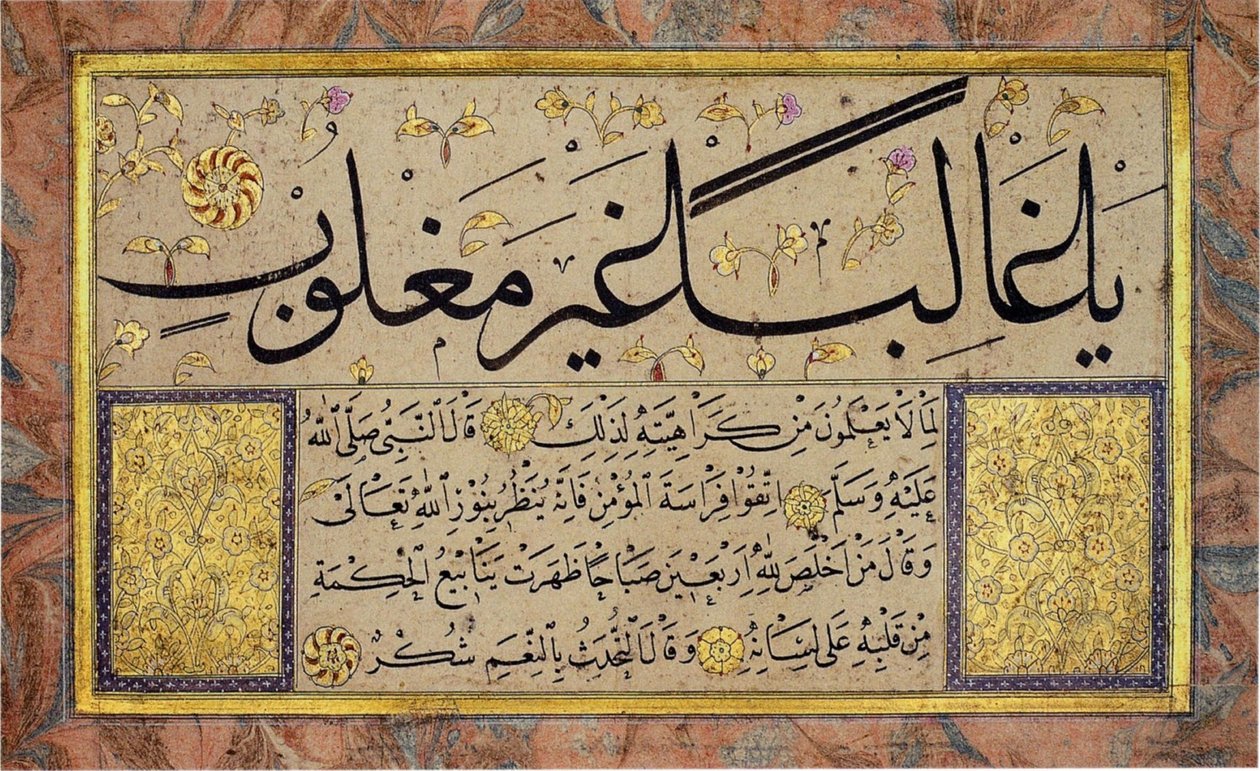 يَا غَالِبًا غَيْرَ مَغْلُوبٍ
لِمَا لَا يَعْلَمُونَ مِنْ كَرَاهِيَتِهِ لِذَلِكَ قَالَ النَّبِيُّ صَلَّى اللهُ
عَلَيْهِ وَسَلَّمَ اِتَّقُوا فِرَاسَةَ الْمُؤْمِنِ فَاِنَّهُ يَنْظُرُ بِنُورِ اللهِ تَعَالَى
وَقَالَ مَنْ اَخْلَصَ لِلّٰهِ اَرْبَعِينَ صَبَاحًا ظَهَرَتْ يَنَابِيعُ الْحِكْمَةِ
مِنْ قَلْبِهِ عَلَى لِسَانِهِ وَقَالَ التَّحَدُّثُ بِالنِّعَمِ شُكْرٌ